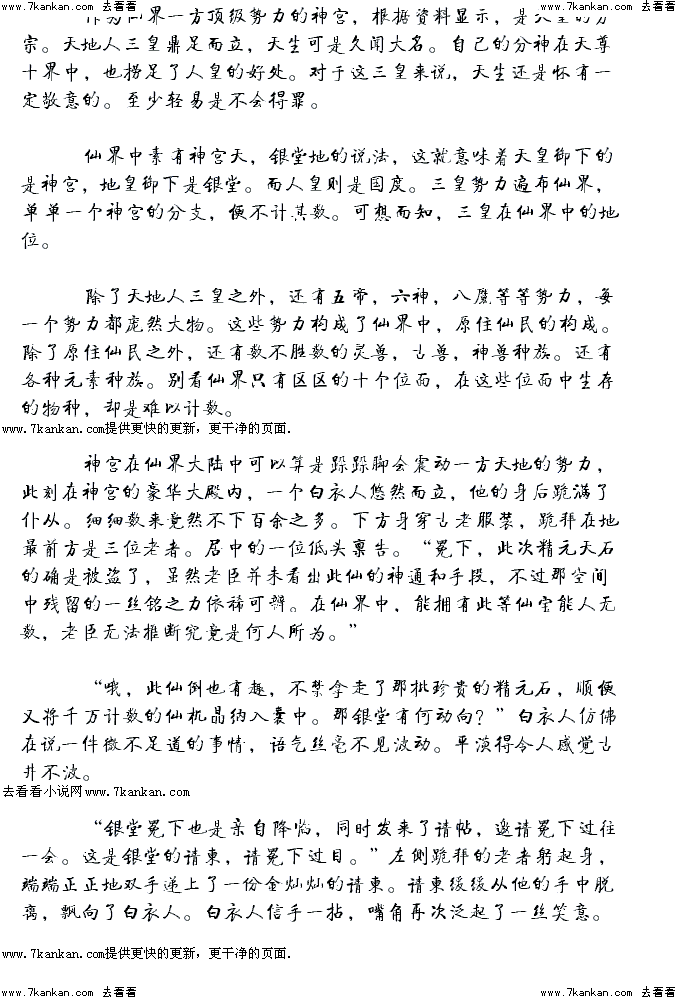 www.7kankan.com 去看看 www.7kankan.com 去看看
作为仙界一方顶级势力的神宫，根据资料显示，是天皇的分
宗。天地人三皇鼎足而立，天生可是久闻大名。自己的分神在天尊
十界中，也捞足了人皇的好处。对于这三皇来说，天生还是怀有一
定敬意的。至少轻易是不会得罪。
仙界中素有神宫天，银堂地的说法，这就意味着天皇御下的
是神宫，地皇御下是银堂。而人皇则是国度。三皇势力遍布仙界，
单单一个神宫的分支，便不计其数。可想而知，三皇在仙界中的地
位。
除了天地人三皇之外，还有五帝，六神，八魔等等势力，每
一个势力都庞然大物。这些势力构成了仙界中，原住仙民的构成。
除了原住仙民之外，还有数不胜数的灵兽，古兽，神兽种族。还有
各种元素种族。别看仙界只有区区的十个位面，在这些位面中生存
的物种，却是难以计数。
www.7kankan.com提供更快的更新，更干净的页面.
神宫在仙界大陆中可以算是跺跺脚会震动一方天地的势力，
此刻在神宫的豪华大殿内，一个白衣人悠然而立，他的身后跪满了
仆从。细细数来竟然不下百余之多。下方身穿古老服装，跪拜在地
最前方是三位老者。居中的一位低头禀告。“冕下，此次精元天石
的确是被盗了，虽然老臣并未看出此仙的神通和手段，不过那空间
中残留的一丝铭之力依稀可辩。在仙界中，能拥有此等仙宝能人无
数，老臣无法推断究竟是何人所为。”
“哦，此仙倒也有趣，不禁拿走了那批珍贵的精元石，顺便
又将千万计数的仙机晶纳入囊中。那银堂有何动向？”白衣人仿佛
在说一件微不足道的事情，语气丝毫不见波动。平淡得令人感觉古
井不波。
去看看小说网www.7kankan.com
“银堂冕下也是亲自降临，同时发来了请帖，邀请冕下过往
一会。这是银堂的请柬，请冕下过目。”左侧跪拜的老者躬起身，
端端正正地双手递上了一份金灿灿的请柬。请柬缓缓从他的手中脱
离，飘向了白衣人。白衣人信手一拈，嘴角再次泛起了一丝笑意。
www.7kankan.com提供更快的更新，更干净的页面.
www.7kankan.com 去看看 www.7kankan.com 去看看